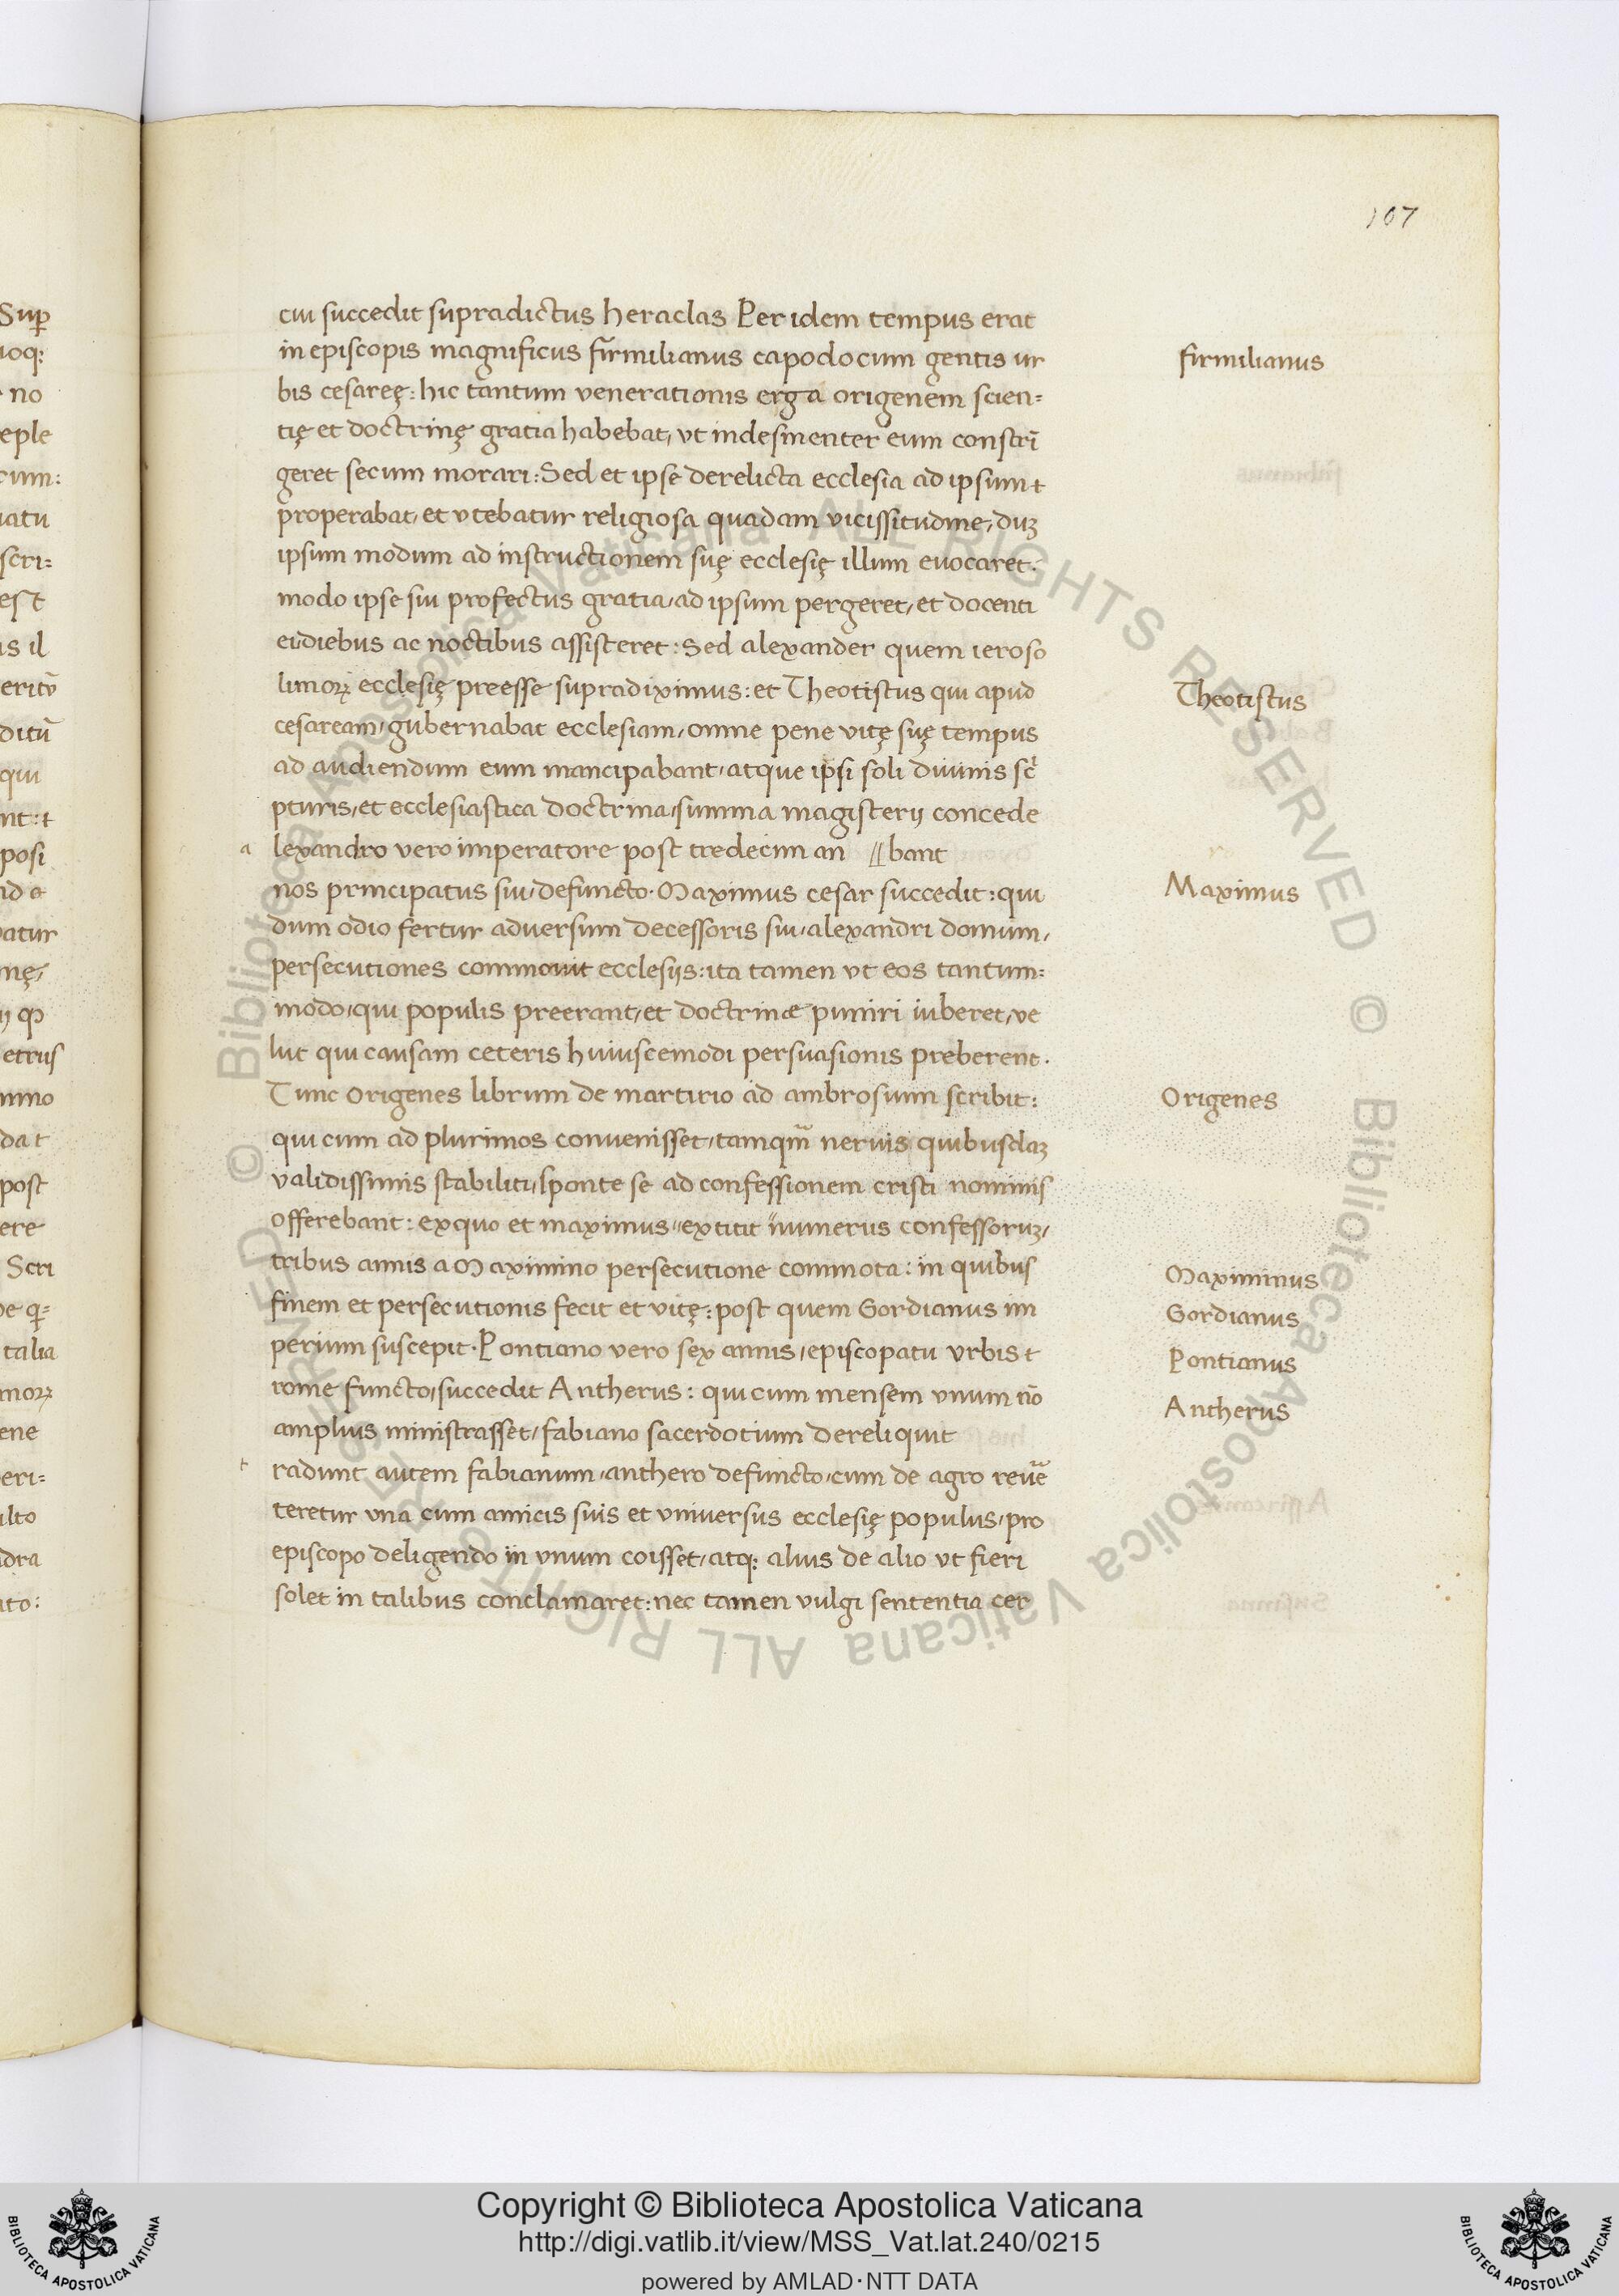 107
cui succedit supradictus heraclas Per idem tempus erat
in episcopis magnificus firmilianus capodocum gentis ur
bis cesareę: hic tantum venerationis erga origenem scien=
tię et doctrinę gratia habebat, ut indesinenter eum constrī
geret secum morari: Sed et ipse derelicta ecclesia ad ipsum
properabat, et utebatur religiosa quadam vicissitudine, duꝫ
ipsum modum ad instructionem suę ecclesię illum evocaret.
modo ipse sui profectus gratia, ad ipsum pergeret, et docenti
ei diebus ac noctibus assisteret: Sed alexander quem ieroso
limoꝝ ecclesię preesse supradiximus: et Theotistus qui apud
cesaream, gubernabat ecclesiam, omne pene vitę suę tempus
ad audiendum eum mancipabant, atque ipsi soli divinis sc̄
pturis, et ecclesiastica doctrina, summa magisterij concede
a lexandro vero imperatore post tredecim an̄ //bant
nos principatus sui, defuncto. Maximus cesar succedit: qui
dum odio fertur adversum decessoris sui, alexandri domum,
persecutiones commovit ecclesijs: ita tamen ut eos tantum=
modo, qui populis preerant, et doctrinæ puniri iuberet, ve
lut qui causam ceteris huiuscemodi persuasionis preberent.
Tunc Origenes librum de martirio ad ambrosium scribit:
qui cum ad plurimos convenisset, tamqm̄ nervis quibusdaꝫ
validissimis stabiliti, sponte se ad confessionem cristi nominis
offerebant: ex quo et maximus "extitit "numerus confessoruꝫ,
tribus annis a Maximino persecutione commota: in quibus
finem et persecutionis fecit et vitę: post quem Gordianus im
perium suscepit. Pontiano vero sex annis, episcopatu urbis
rome functo, succedit Antherus: qui cum mensem unum nō
amplius ministrasset, fabiano sacerdotium dereliquit
t radunt autem fabianum, anthero defuncto, cum de agro reuē
teretur una cum amicis suis et universus ecclesię populus, pro
episcopo deligendo in unum coisset, atqꝫ alius de alio ut fieri
solet in talibus conclamaret: nec tamen vulgi sententia cer
firmilianus
Theotistus
Maximus
Origenes
Maximinus
Gordianus
Pontianus
Antherus
Copyright © Biblioteca Apostolica Vaticana
http://digi.vatlib.it/view/MSS_Vat.lat.240/0215
powered by AMLAD·NTT DATA
BIBLIOTECA APOSTOLICA VATICANA
BIBLIOTECA APOSTOLICA VATICANA
© Biblioteca Apostolica Vaticana ALL RIGHTS RESERVED
© Biblioteca Apostolica Vaticana ALL RIGHTS RESERVED